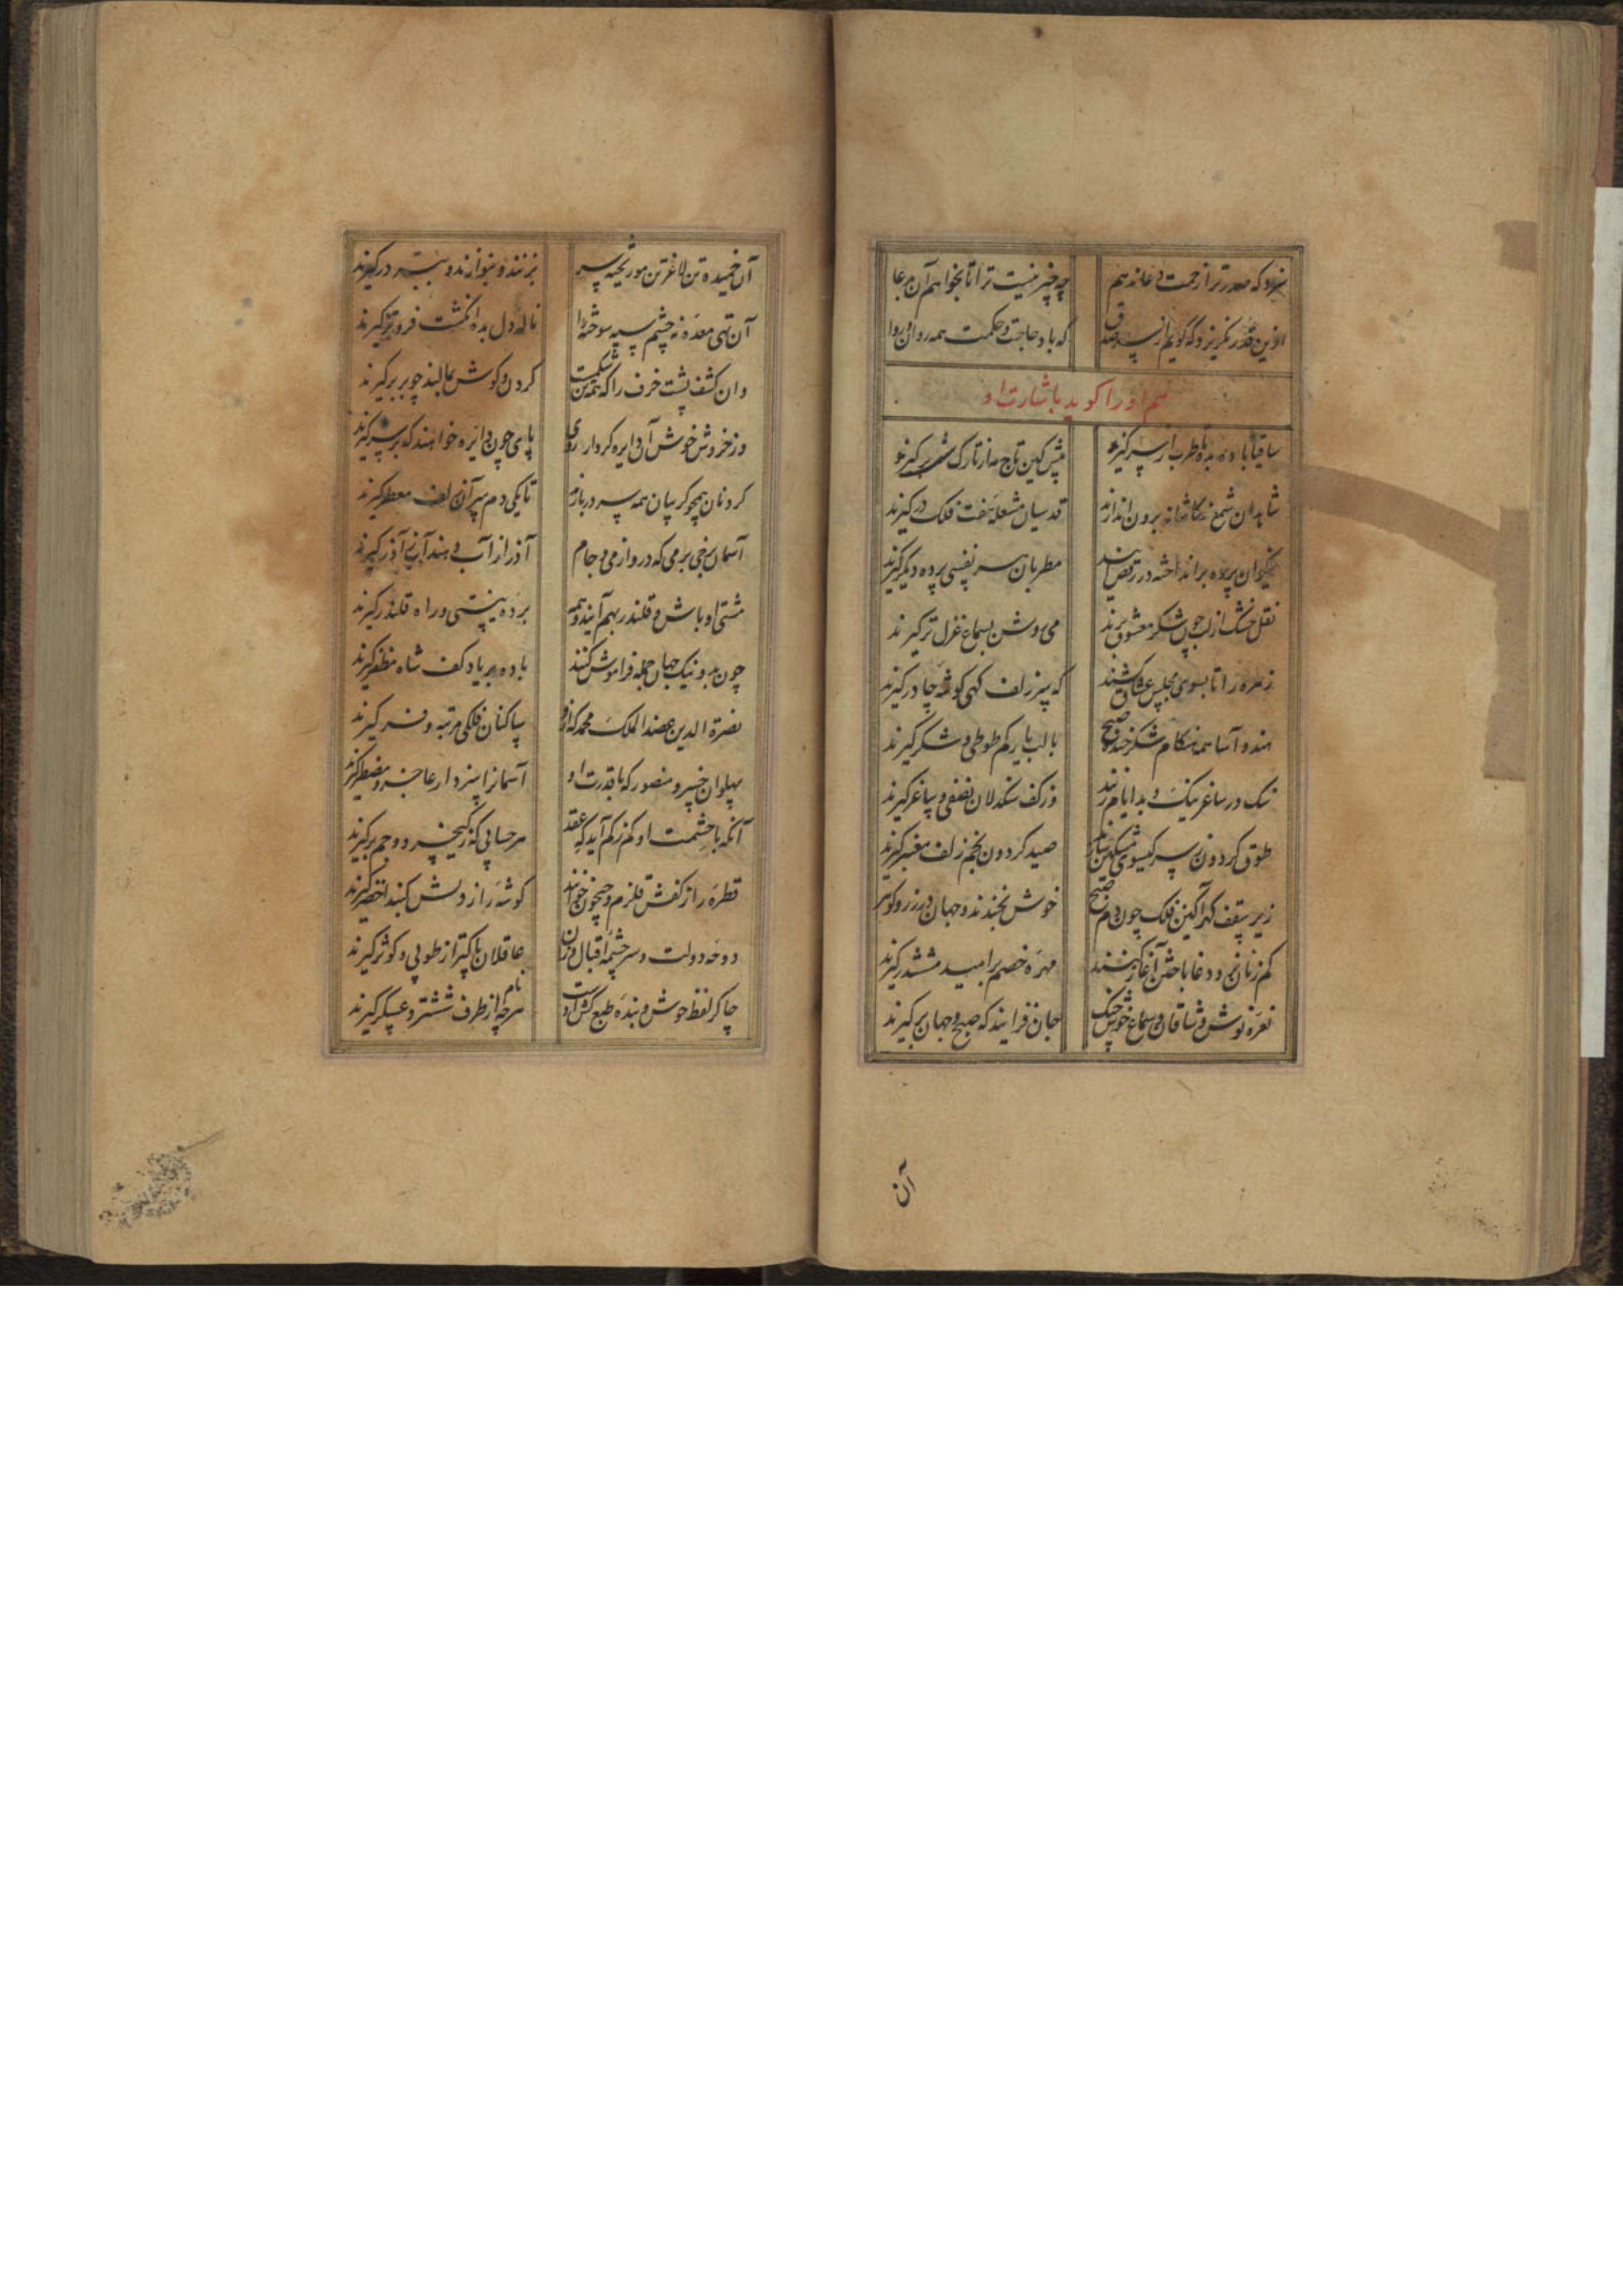 سزد که صدر ترا زحمت دعا ندهم
چه چیز نیست ترا تا بخواهم آن بدعا
ازین قدر نگریزد که گویم از سر صدق
که باد حاجت و حکمت همه روان و روا
هم او را گوید باشارت او
ساقیا باده بده تا طرب از سر گیرند
پیش کین تاج مه از تارک شب برگیرند
شاهدان شمع ز کاشانه برون اندازند
قدسیان مشعلهٔ هفت فلک در گیرند
نیکوان پرده برانداخته در رقص آیند
مطربان هر نفسی پردهٔ دیگر گیرند
نقل خشک از لب چون شکر معشوق برند
می روشن بسماع غزل تر گیرند
زهره را تا بسوی مجلس عشاق کشند
که سر زلف گهی گوشهٔ چادر گیرند
هندو آسا همه هنگام شکرخندهٔ صبح
با لب یار کم طوطی و شکر گیرند
سنگ در ساغر نیک و بد ایام زنند
وز کف سنگدلان نصفی و ساغر گیرند
طوق گردون بسر گیسوی مشکین
صید گردون بخم زلف معنبر گیرند
زیر سقف گهرآگین فلک چون دم صبح
خوش بخندند و جهان در زر و گوهر گیرند
کم زنان نرد دغا باختن آغاز کنند
مهرهٔ خصم بر امید مششدر گیرند
نعرهٔ نوش وشاقان و سماع خوش چنگ
جان فزایند که صبح و جهان برگیرند
آن
آن خمیده تن لاغر تن مو ریخته سر
بزنند و بنوازند و ببر در گیرند
آن تهی معدهٔ نه چشم سیه سوخته را
ناله دل بده انگشت فروتر گیرند
وان کشف پشت خزف را که همه تن شکمست
گردن و گوش بمالند چو بربر گیرند
وز خروش خوش آن دایره کردار روی
پای چون دایره خواهند که بر سر گیرند
گردنان همچو گریبان همه سر دربازند
تا یکی دم سر آن زلف معطر گیرند
آسمان رنجی برمی که در و از می و جام
آذر از آب دهند آب ز آذر گیرند
مشتی اوباش و قلندر بهم آیند و همه
بر ده نیستی و راه قلندر گیرند
چون بد و نیک جهان جمله فراموش کنند
باده بر یاد کف شاه مظفر گیرند
نصرة الدین عضد الملک محمد که ازو
ساکنان فلکی مرتبه و فر گیرند
پهلوان خسرو منصور که با قدرت او
آسمانرا سزد ار عاجز و مضطر گیرند
آنکه با حشمت او کم ز کم آید که عقد
هر حسابی که ز کیخسرو و جم برگیرند
قطرهٔ را ز کفش قلزم و جیحون خوانند
گوشهٔ را ز دلش گنبد اخضر گیرند
دوحهٔ دولت و سرچشمهٔ اقبال ورا
عاقلان پاکتر از طوبی و کوثر گیرند
چاکر لفظ خوش و بندهٔ طبع کش اوست
هرچه از طرف ششتر و عسکر گیرند
نام